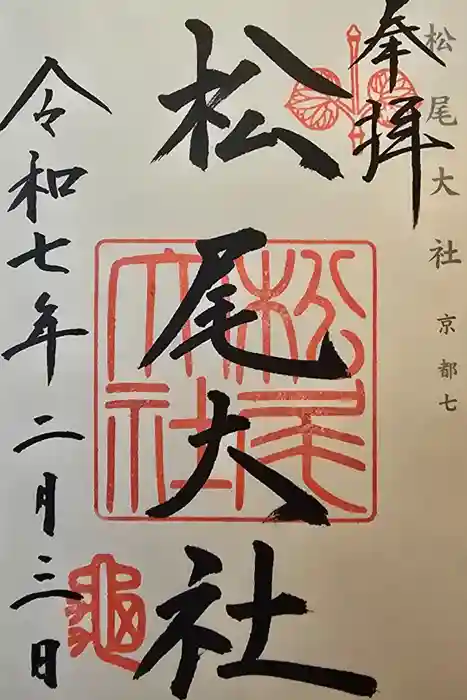 松尾大社 京都七
奉拝
松尾大社
松尾大社
令和七年二月三日
亀